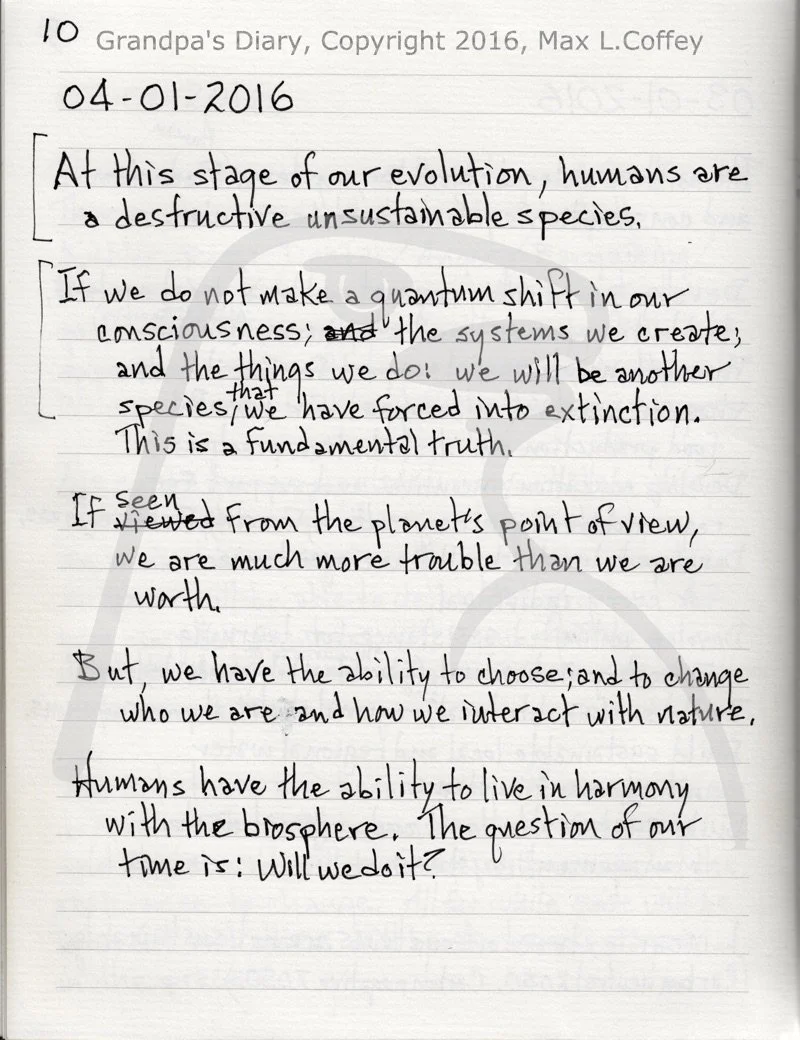 10
Grandpa's Diary, Copyright 2016, Max L.Coffey
04-01-2016
At this stage of our evolution, humans are
a destructive unsustainable species.
If we do not make a quantum shift in our
consciousness; and the systems we create;
and the things we do: we will be another
that
species, we have forced into extinction.
This is a fundamental truth.
seen
If viewed from the planet's point of view,
we are much more trouble than we are
worth.
But, we have the ability to choose; and to change
who we are and how we interact with nature.
Humans have the ability to live in harmony
with the biosphere. The question of our
time is: Will we do it?